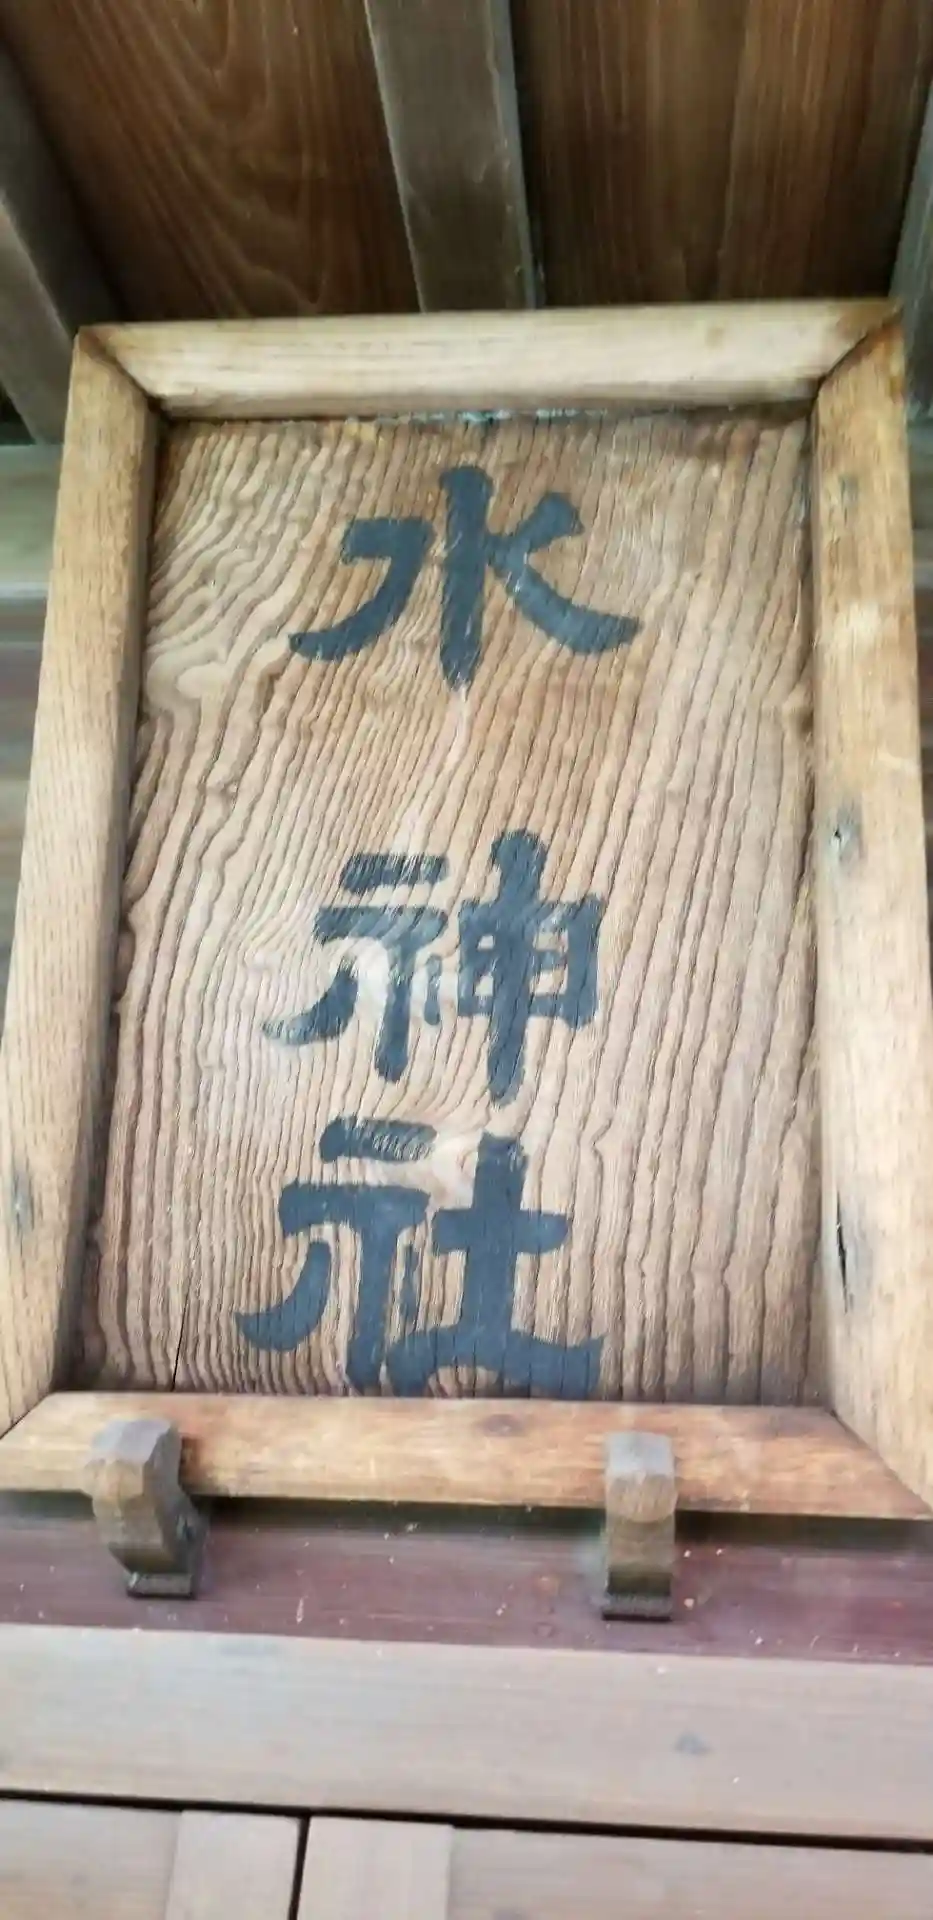 水神社